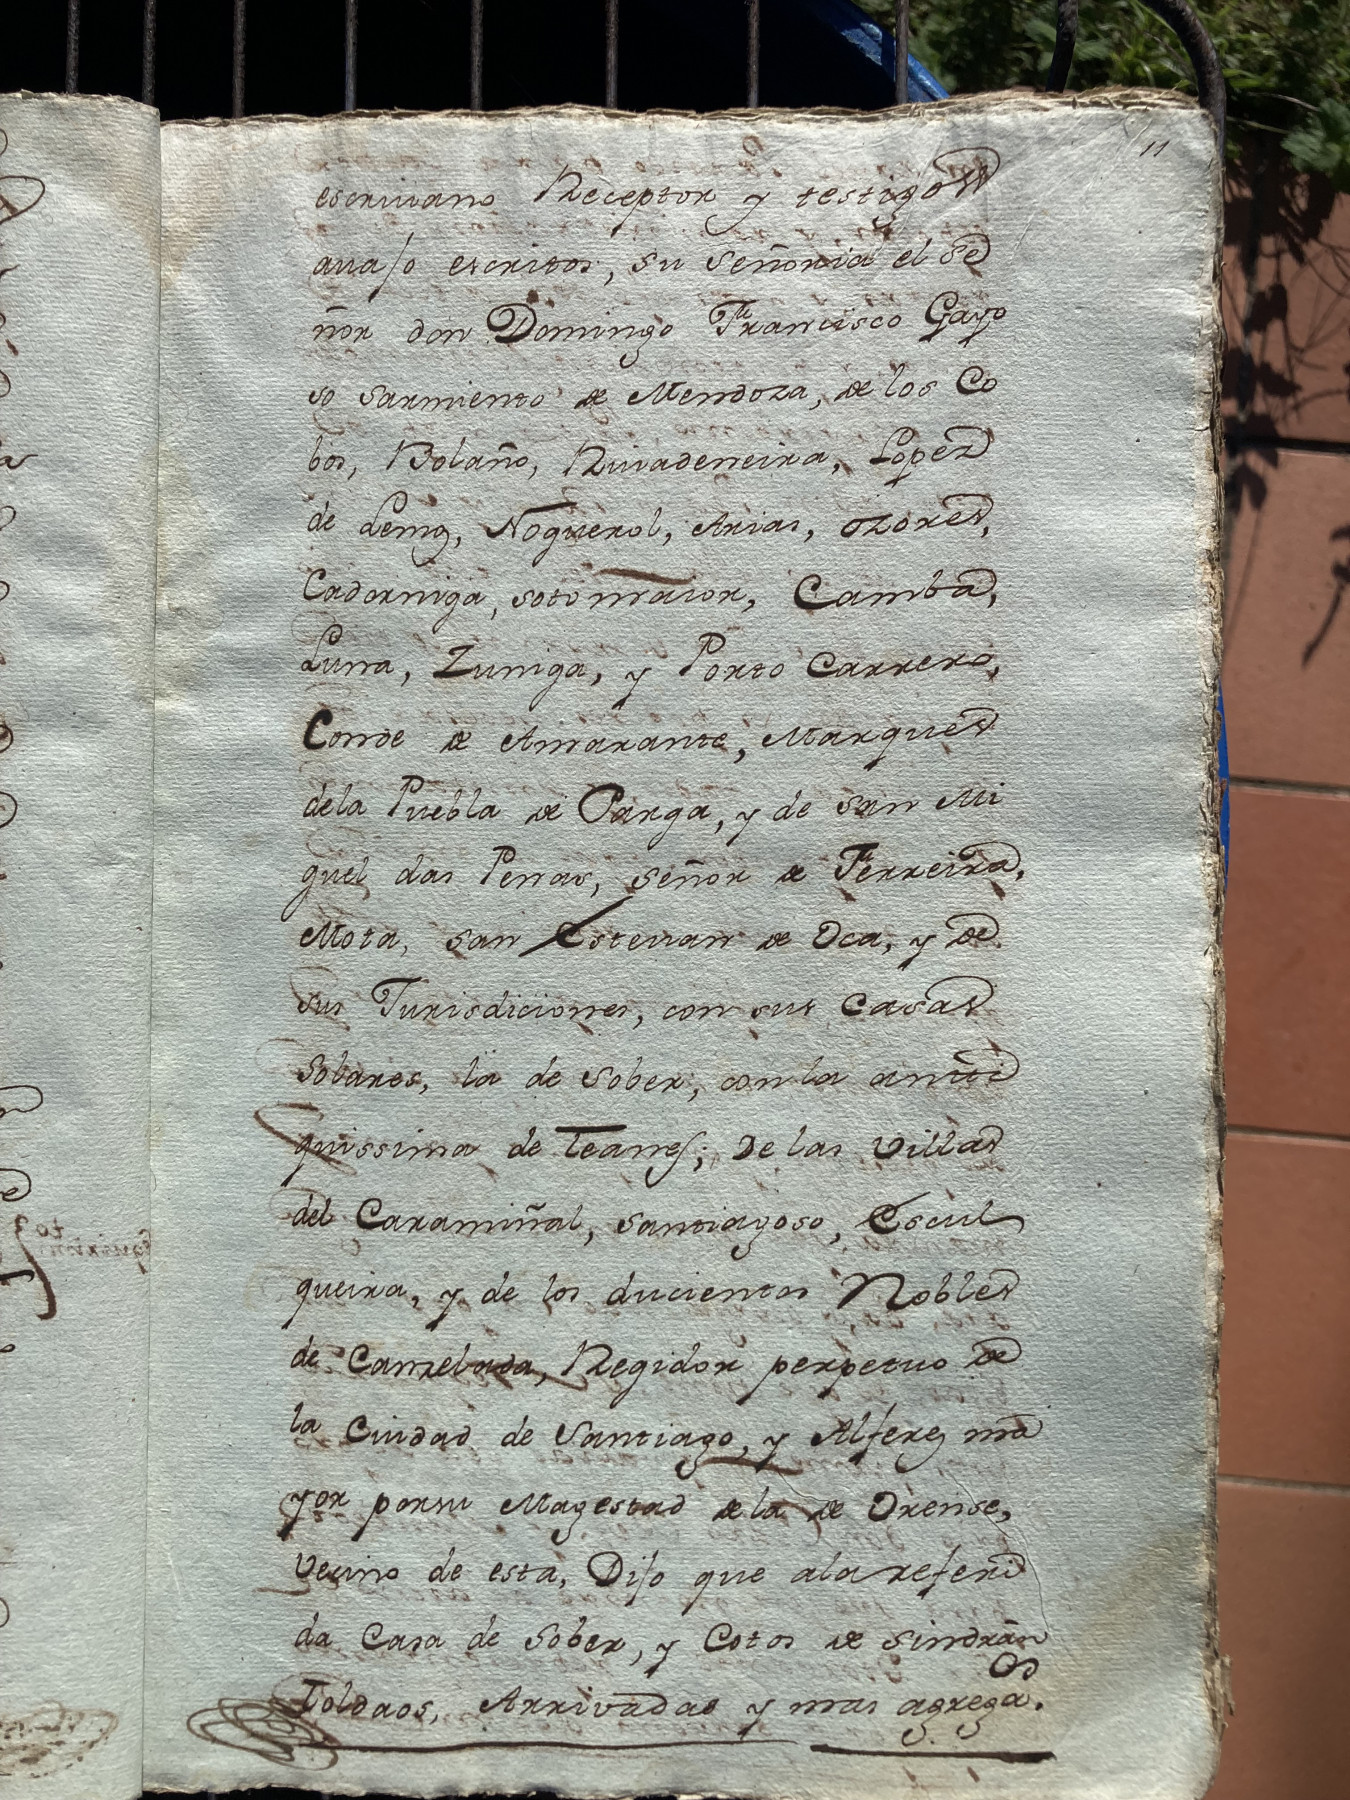 11
escriuano Receptor y testigos
auajo escritos, su señoria el Se
ñor don Domingo Francisco Gayo
so sarmiento de Mendoza, de los Co
bos, Bolaño, Riuadeneira, Lopez
de Lemos, Noguerol, Arias, ozores,
Cadorniga, sotomaior, Camba,
Luna, Zuniga, y Porto Carrero,
Conde de Amarante, Marques
dela Puebla de Parga, y de san Mi
guel das Penas, señor de Ferreira,
Mota, san Esteuan de Oca, y de
sus Jurisdiciones, con sus Casas
Solares, la de Sober, con la anti
quissima de Teanes; De las villas
del Caramiñal, santiagoso, Escul
queira, y de los ducientos Nobles
de Canzelada, Regidor perpetuo de
la Ciudad de Santiago, y Alferez ma
yor porsu Magestad dela de Orense,
Vecino de esta, Dijo que ala referi
da Casa de Sober, y Cotos de sindrán
Toldaos, Arrivadas y mas agrega.os